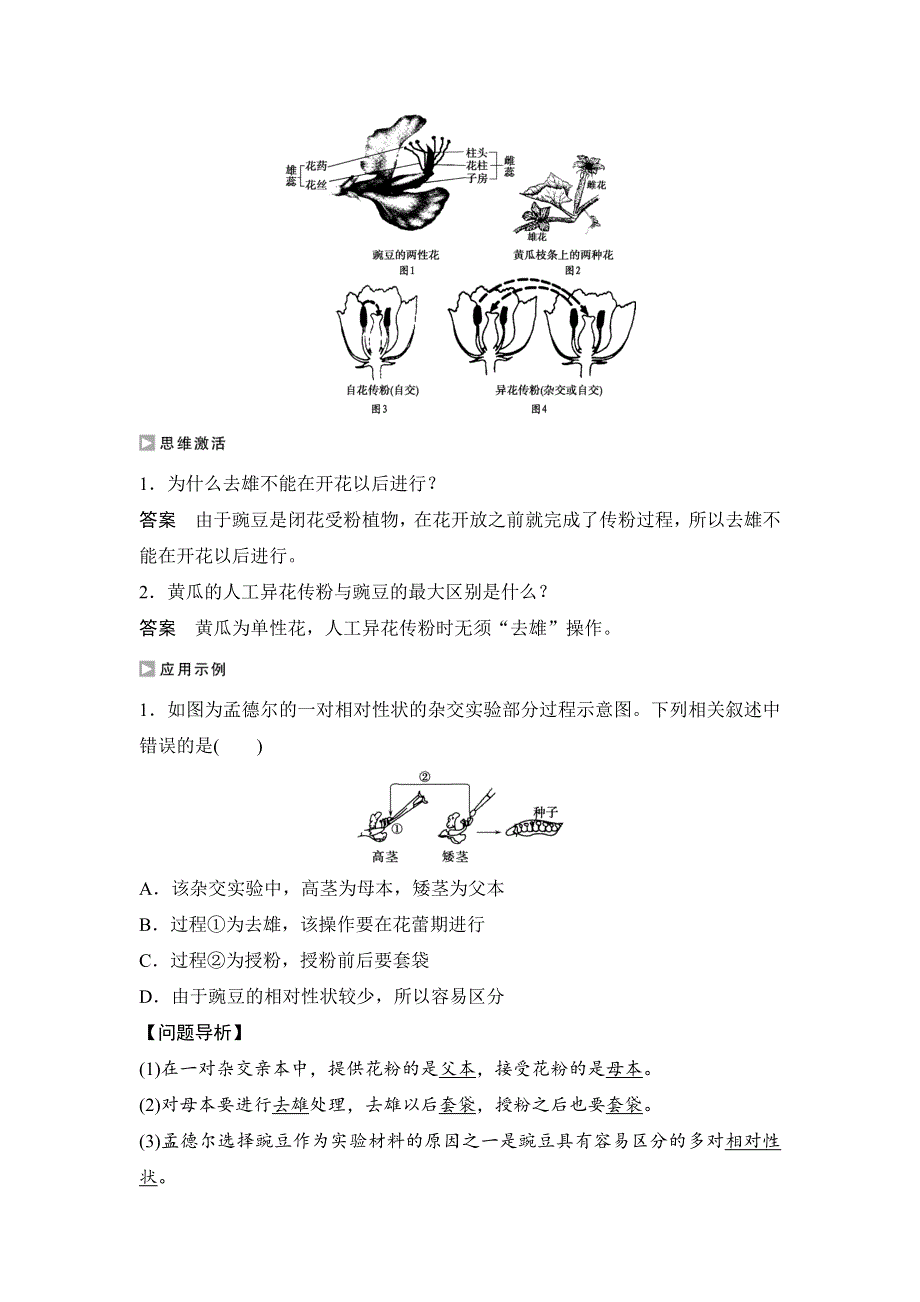 雄蕊
花药
花丝
柱头
花柱
子房
雌蕊
雌花
雄花
豌豆的两性花
图1
黄瓜枝条上的两种花
图2
自花传粉(自交)
图3
异花传粉(杂交或自交)
图4
思维激活
1．为什么去雄不能在开花以后进行？
答案　由于豌豆是闭花受粉植物，在花开放之前就完成了传粉过程，所以去雄不
能在开花以后进行。
2．黄瓜的人工异花传粉与豌豆的最大区别是什么？
答案　黄瓜为单性花，人工异花传粉时无须“去雄”操作。
应用示例
1．如图为孟德尔的一对相对性状的杂交实验部分过程示意图。下列相关叙述中
错误的是(　　)
②
①
种子
高茎
矮茎
A．该杂交实验中，高茎为母本，矮茎为父本
B．过程①为去雄，该操作要在花蕾期进行
C．过程②为授粉，授粉前后要套袋
D．由于豌豆的相对性状较少，所以容易区分
【问题导析】
(1)在一对杂交亲本中，提供花粉的是父本，接受花粉的是母本。
(2)对母本要进行去雄处理，去雄以后套袋，授粉之后也要套袋。
(3)孟德尔选择豌豆作为实验材料的原因之一是豌豆具有容易区分的多对相对性
状。